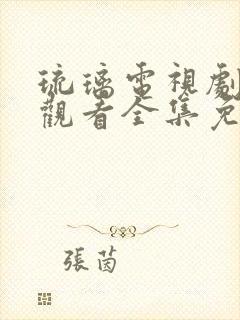 琉璃電視劇
觀看全集免
張茵